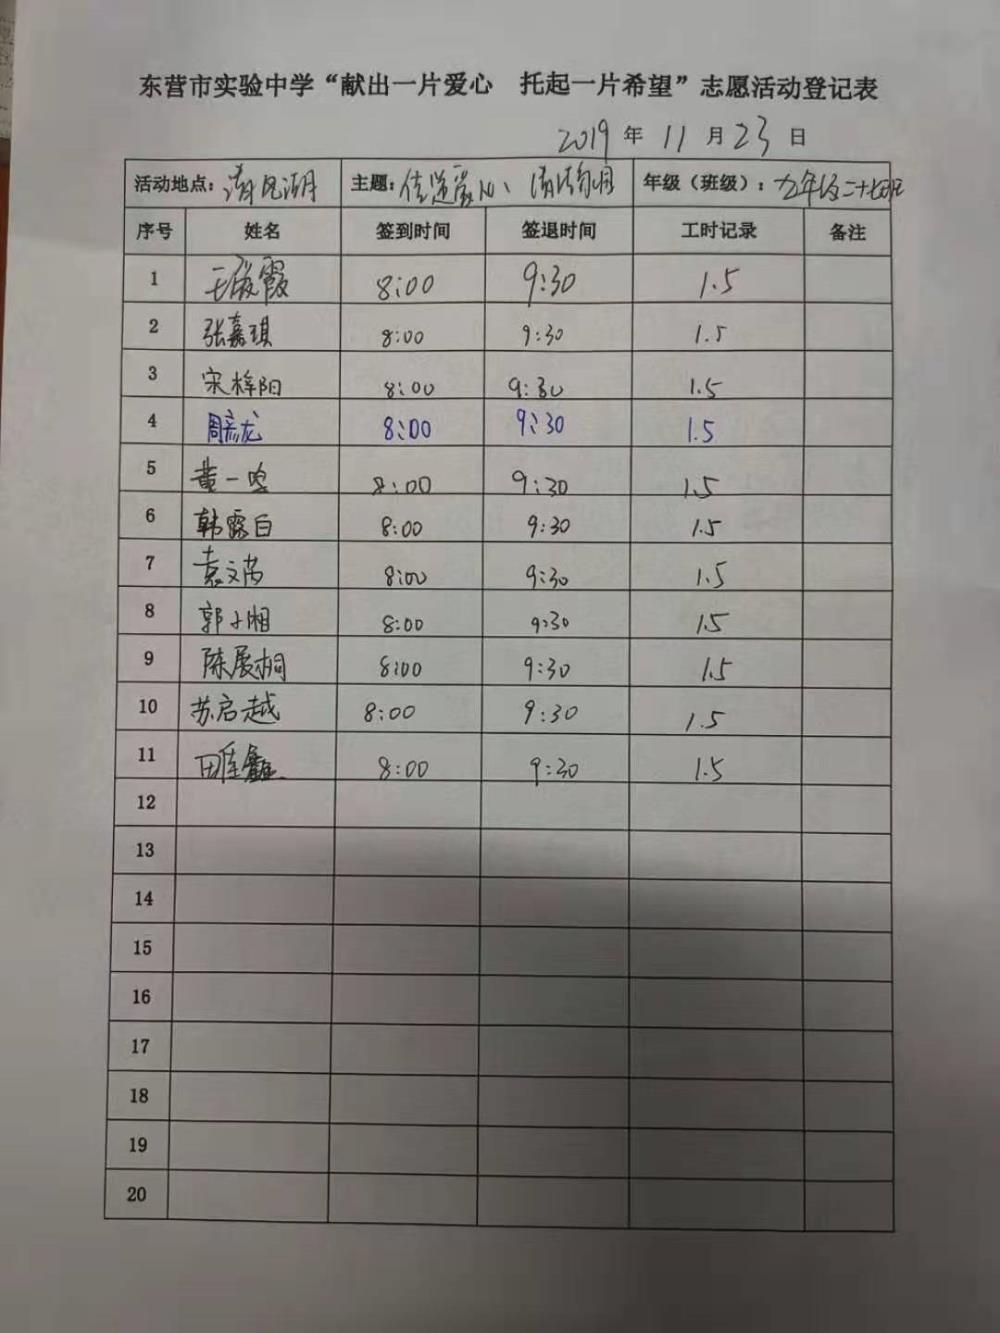 东营市实验中学“献出一片爱心 托起一片希望”志愿活动登记表
2019 年 11 月 23 日
活动地点：清风湖 主题：传递爱心、情 年级（班级）：九年级二十七班
序号 姓名 签到时间 签退时间 工时记录 备注
1 霞 8:00 9:30 1.5
2 张嘉琪 8:00 9:30 1.5
3 宋梓阳 8:00 9:30 1.5
4 周彦龙 8:00 9:30 1.5
5 黄一鸣 8:00 9:30 1.5
6 韩露白 8:00 9:30 1.5
7 袁文 8:00 9:30 1.5
8 郭小湘 8:00 9:30 1.5
9 陈展桐 8:00 9:30 1.5
10 苏启越 8:00 9:30 1.5
11 田佳鑫 8:00 9:30 1.5
12
13
14
15
16
17
18
19
20